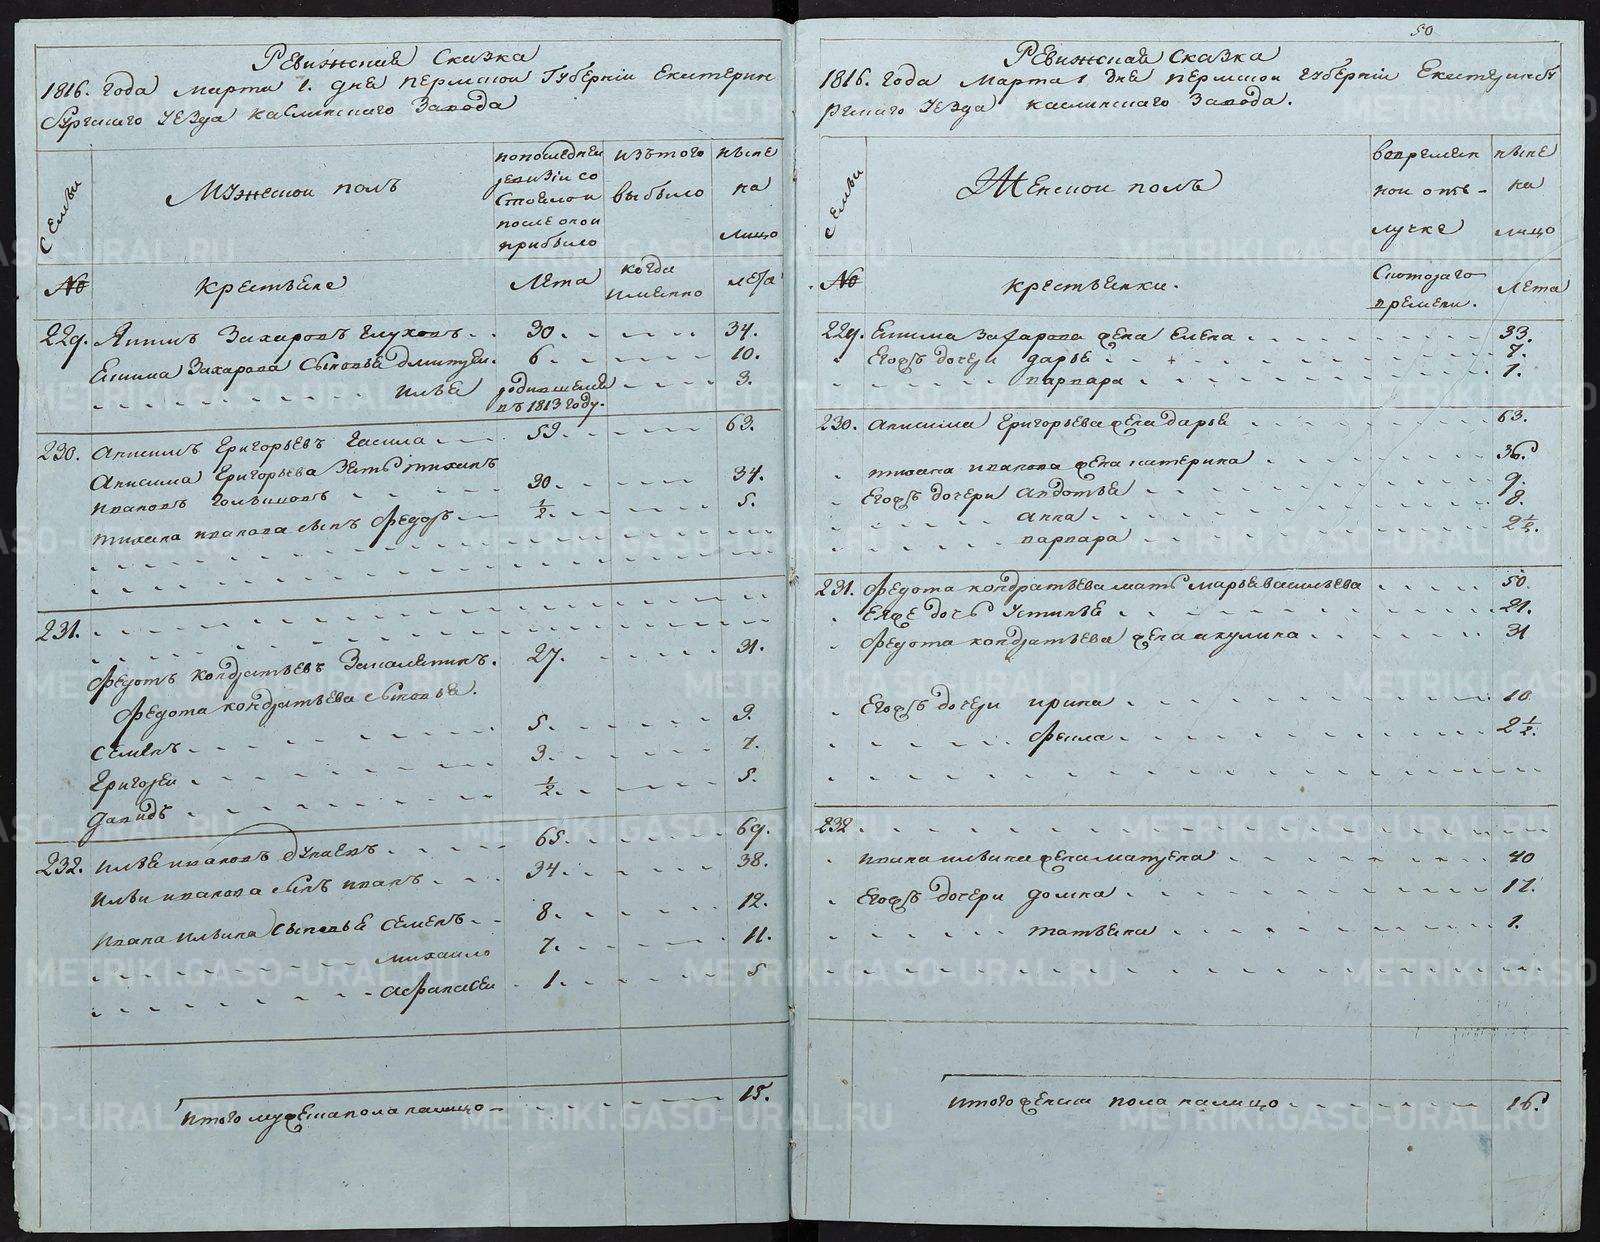 Ревижская Сказка
1816. года марта 1. дня пермской Губернiи Екатерин
бургскаго уезда каслинскаго Завода
Семьи
Мужескои полъ
попоследнеи ревизiи состоялои после онои прибыло
изътого выбыло
ныне на лицо
№
крестьяне
Лета
когда имянно
лета
229. Якимъ Захаровъ Глуховъ 30. 34.
Екима Захарова Сыновья дмитреи. 6. 10.
илья родившеися въ 1813 году. 3.
230. Анисимъ Григорьевъ 59. 63.
Анисима Григорьева Зять тиханъ
ивановъ 30. 34.
тихана иванова сынъ Федоръ ½. 5.
231.
Федотъ кондратьевъ 27. 31.
Федота кондратьева сыновья.
Семенъ 5. 9.
Григореи 3. 7.
давидъ ½. 5.
232. илья ивановъ дунаевъ 65. 69.
ильи иванова сынъ иванъ 34. 38.
ивана ильина Сыновья Семенъ 8. 12.
михаило 7. 11.
Афанасеи 1. 5
итого мужеска пола налицо 15.
50
Ревижская Сказка
1816. года марта 1 дня пермскои губернiи Екатеринбу
ргскаго уезда каслинскаго Завода.
Семьи
Женскои полъ
вовремян нои отълучке
ныне на лицо
№
крестьянки.
Скотораго времени.
Лета
229. Екима Захарова жена Елена 33.
Егожъ дочери дарья 7.
варвара 1.
230. Анисима Григорьева жена дарья 63.
тихана иванова жена катерина 36.
Егожъ дочери авдотья 9.
анна 8.
варвара 2½.
231. Федота кондратьева мать марья васильева 50.
Еяже дочь устинья 21.
Федота кондратьева жена акулина 31
Егожъ дочери ирина 10
Фекла 2½.
232.
ивана ильина жена матрена 40
Егожъ дочери домна 17.
татьяна 1.
итого женска пола налицо 16.
METRIKI.GASO-URAL.RU